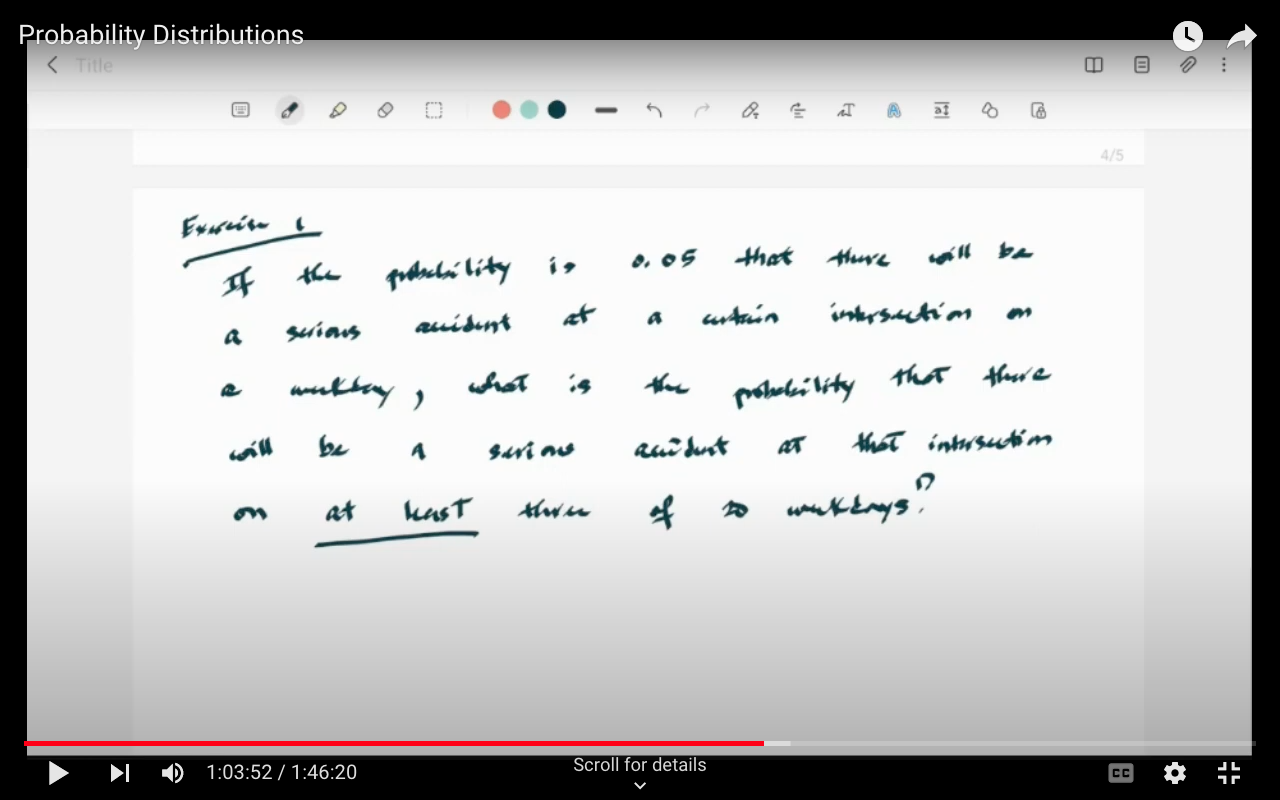 Probability Distributions
Title
4/5
Exercise 1
If the probability is 0.05 that there will be
a serious accident at a certain intersection on
a weekday, what is the probability that there
will be a serious accident at that intersection
on at least three of 20 weekdays?
1:03:52 / 1:46:20
Scroll for details
CC